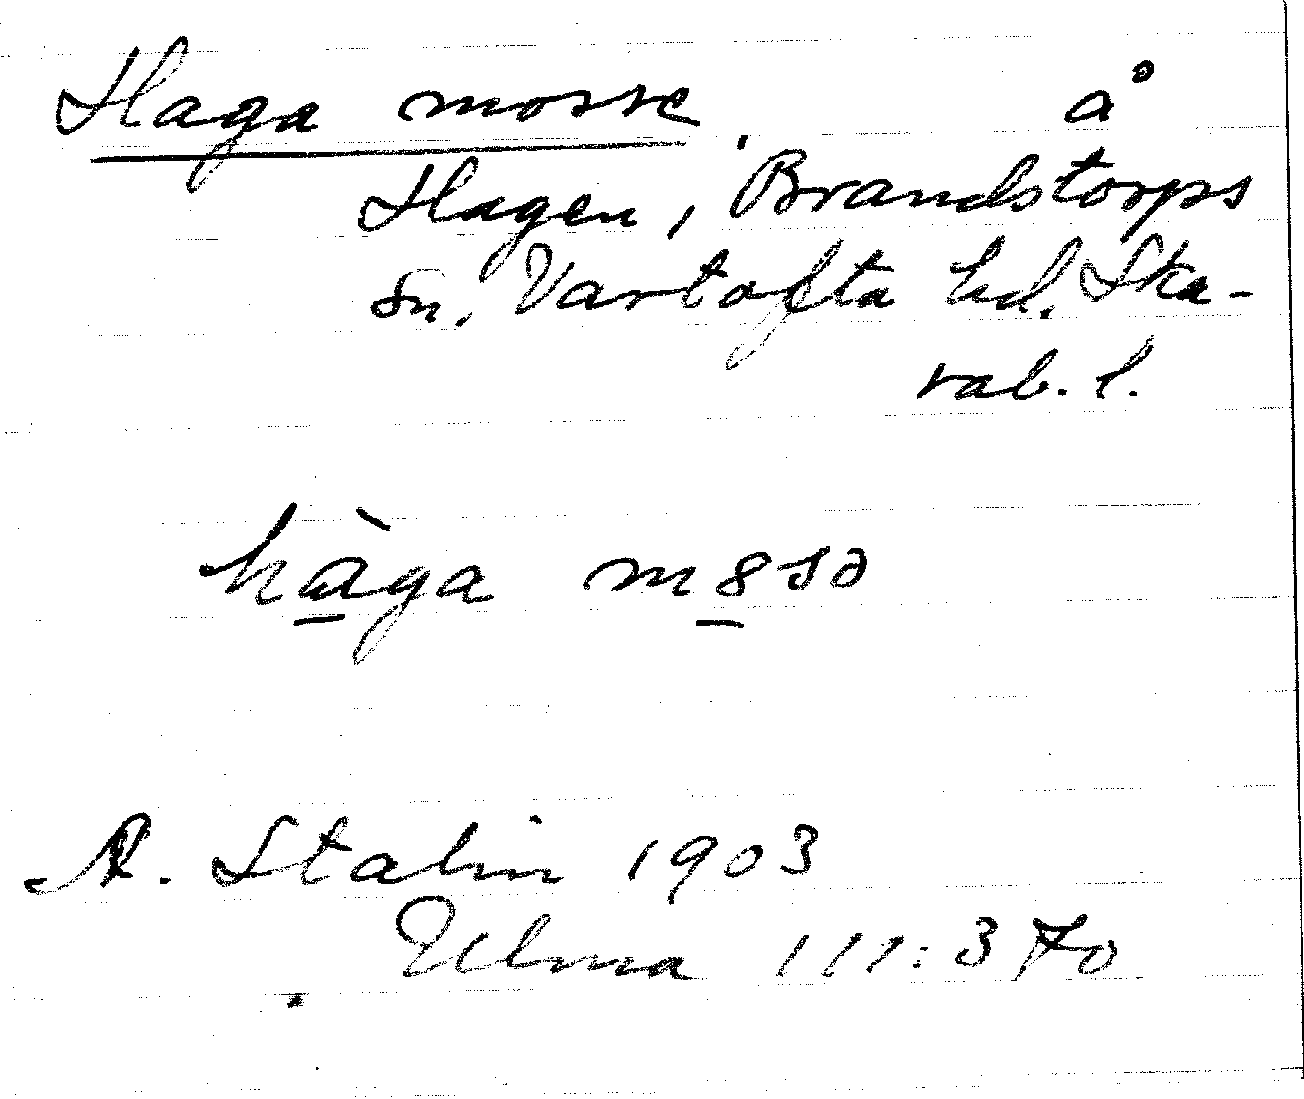 Haga mosse, å
Hagen, Brandstorps
sn. Vartofta hd. Ska-
rab. l.
hàga m8sə
A. Stalin 1903
Ulma 111:370